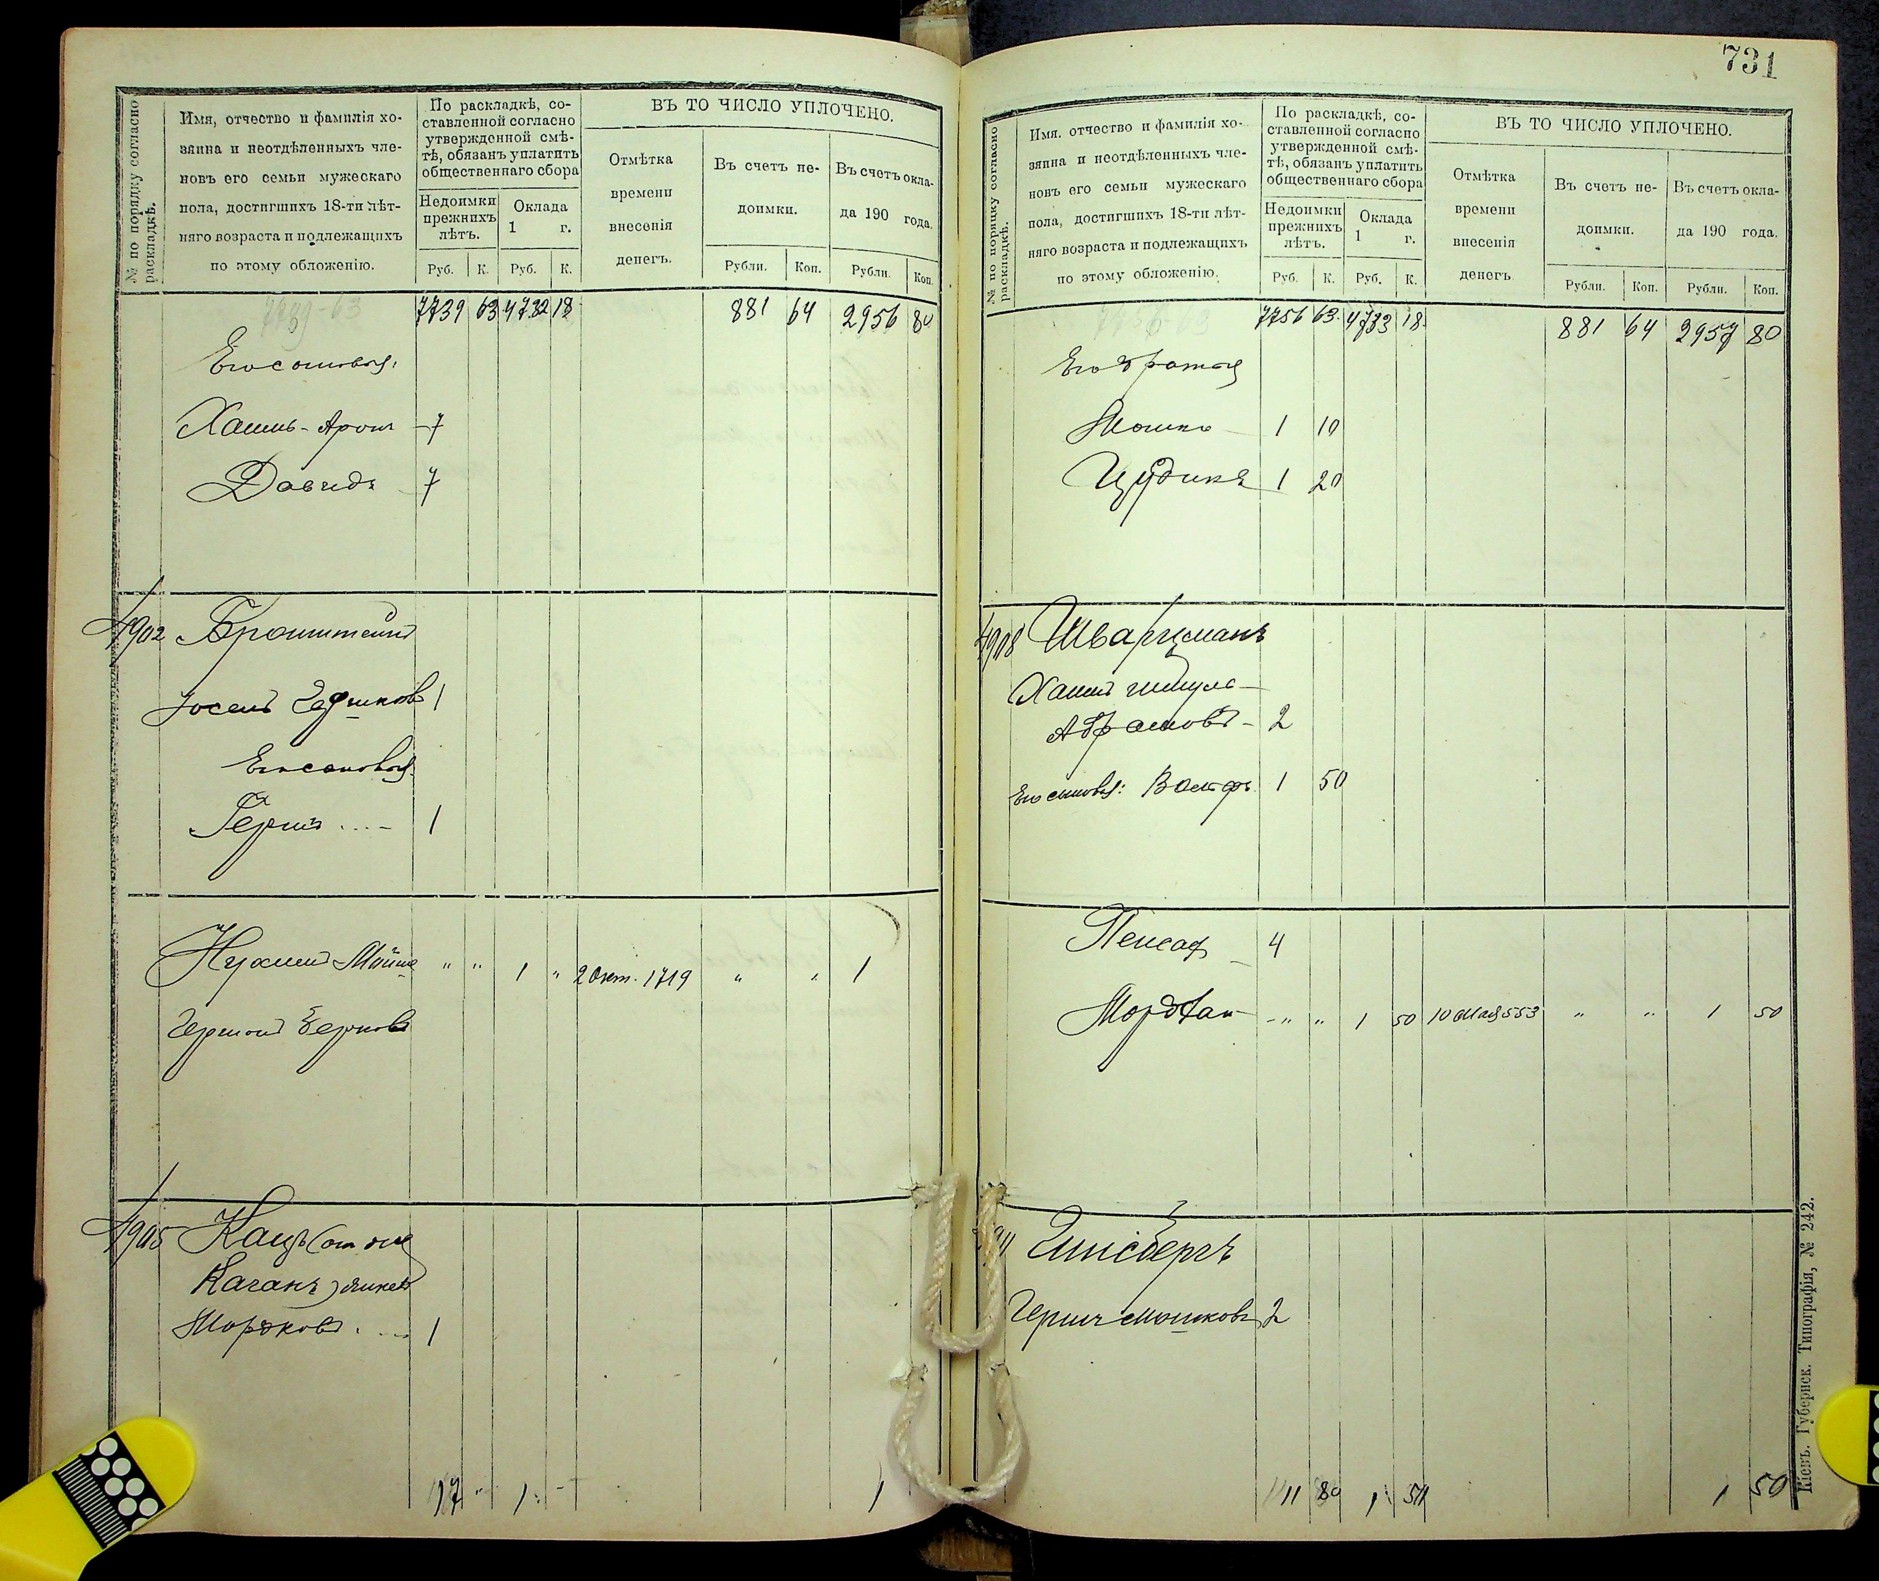 731
№ по порядку согласно раскладкѣ.
Имя, отчество и фамилія хо-
зяина и неотдѣленныхъ чле-
новъ его семьи мужескаго
пола, достигшихъ 18-ти лѣт-
няго возраста и подлежащихъ
по этому обложенію.
По раскладкѣ, со-
ставленной согласно
утвержденной смѣ-
тѣ, обязанъ уплатить
общественнаго сбора
Недоимки
прежнихъ
лѣтъ.
Оклада
1 г.
Руб. К. Руб. К.
ВЪ ТО ЧИСЛО УПЛОЧЕНО.
Отмѣтка
времени
внесенія
денегъ.
Въ счетъ не-
доимки.
Въ счетъ окла-
да 190 года.
Рубли. Коп. Рубли. Коп.
7739 63 4732 18 881 64 2956 80
Его сыновья:
Хаимъ-Аронъ 7
Давидъ 7
4902 Бронштейнъ
1
Его сыновья
Гершъ 1
Нухимъ " " 1 " 2 Окт. 1719 " " 1
4905 Кацъ (он же
Каганъ)
Мордковъ 1
17 " 1 - 1
№ по порядку согласно раскладкѣ.
Имя, отчество и фамилія хо-
зяина и неотдѣленныхъ чле-
новъ его семьи мужескаго
пола, достигшихъ 18-ти лѣт-
няго возраста и подлежащихъ
по этому обложенію.
По раскладкѣ, со-
ставленной согласно
утвержденной смѣ-
тѣ, обязанъ уплатить
общественнаго сбора
Недоимки
прежнихъ
лѣтъ.
Оклада
1 г.
Руб. К. Руб. К.
ВЪ ТО ЧИСЛО УПЛОЧЕНО.
Отмѣтка
времени
внесенія
денегъ.
Въ счетъ не-
доимки.
Въ счетъ окла-
да 190 года.
Рубли. Коп. Рубли. Коп.
7756 63 4733 18 881 64 2957 80
Его братья
Мошко 1 10
Цудикъ 1 20
4908 Шварцманъ
Хаимъ
Абрамовъ - 2
Его сыновья: Вольфъ 1 50
Пейсах 4
Мордхай - " " 1 50 10 Мая 553 " " 1 50
Гинсбергъ
Гершъ Мошковъ 2
11 80 1 50 1 50
Кіевъ. Губернск. Типографія, № 242.